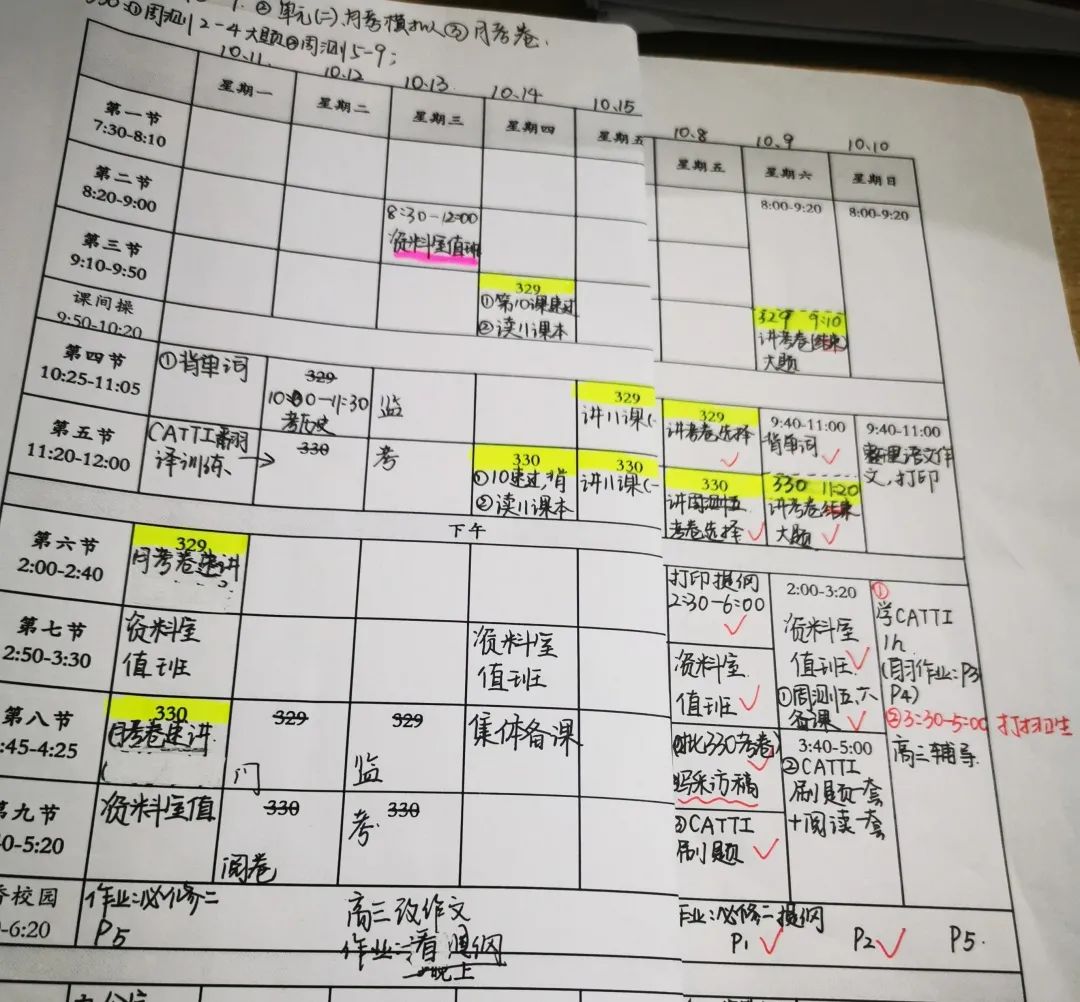 1. ②单元(二)、月考模拟 ③月考卷.
330:①周测2-4大题②周测5-9;
10.11 10.12 10.13 10.14 10.15
星期一 星期二 星期三 星期四 星期五
第一节
7:30-8:10
第二节
8:20-9:00
8:30-12:00
资料室值班
第三节
9:10-9:50
329
①第10课速过
②读11课本
课间操
9:50-10:20
第四节
10:25-11:05
①背单词
329
10:00-11:30
考历史
监
329
讲11课(一
第五节
11:20-12:00
CATTI翻
译训练
330
考
330
①10速过,背
②读11课本
330
讲11课(一
下午
第六节
2:00-2:40
329
月考卷速讲
第七节
2:50-3:30
资料室
值班
资料室
值班
第八节
:45-4:25
330
月考卷速讲
329
329
监
集体备课
第九节
0-5:20
资料室值
330
阅卷
330
考
校园
-6:20
作业:必修二
P5
高三改作文
作业:看提纲
晚上
10.8 10.9 10.10
星期五 星期六 星期日
8:00-9:20 8:00-9:20
329 9:10
讲考卷(结束)
大题
329
讲考卷选择
9:40-11:00
背单词
9:40-11:00
整理语文作
文,打印
330
讲周测五
考卷选择
330 11:20
讲考卷结束
大题
打印提纲
2:30-6:00
2:00-3:20
资料室
值班
①周测五、六
备课
①
学CATTI
1h
(自习作业:P3
P4)
②3:30-5:00 打扫卫生
高三辅导
资料室
值班
330考卷
采访稿
3:40-5:00
②CATTI
刷题一套
+阅读一套
③CATTI
刷题
作业:必修二提纲
P1 P2 P5.